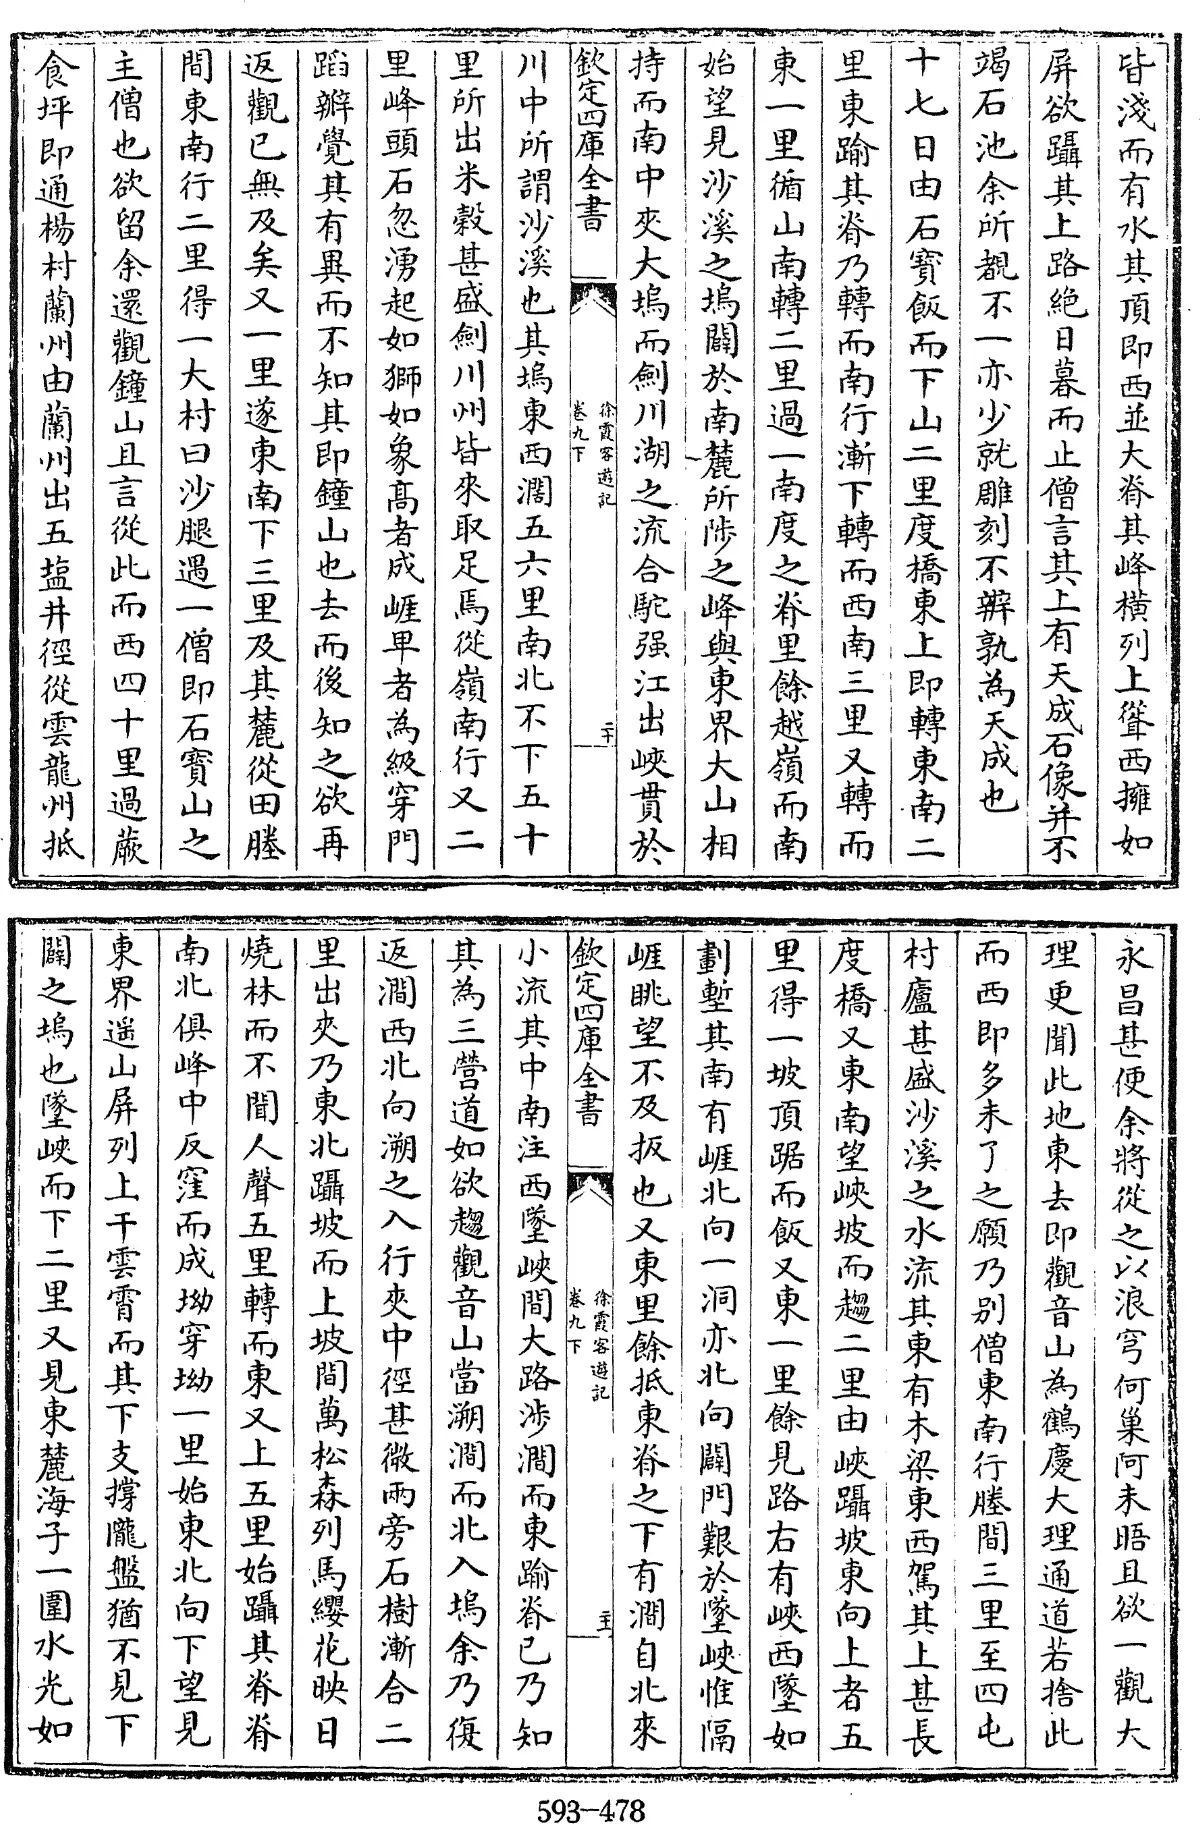 皆淺而有水其頂即西並大脊其峰橫列上聳西擁如
屏欲躡其上路絕日暮而止僧言其上有天成石像并不
竭石池余所覩不一亦少就雕刻不辨孰為天成也
十七日由石寳飯而下山二里度橋東上即轉東南二
里東踰其脊乃轉而南行漸下轉而西南三里又轉而
東一里循山南轉二里過一南度之脊里餘越嶺而南
始望見沙溪之塢闢於南麓所陟之峰與東界大山相
持而南中夾大塢而劍川湖之流合駝强江出峽貫於
欽定四庫全書
徐霞客遊記
卷九下
二十
川中所謂沙溪也其塢東西濶五六里南北不下五十
里所出米糓甚盛劍川州皆來取足焉從嶺南行又二
里峰頭石忽湧起如獅如象高者成崕卑者為級穿門
蹈瓣覺其有異而不知其即鐘山也去而後知之欲再
返觀已無及矣又一里遂東南下三里及其麓從田塍
間東南行二里得一大村曰沙腿遇一僧即石寳山之
主僧也欲留余還觀鐘山且言從此而西四十里過蕨
食坪即通楊村蘭州由蘭州出五盐井徑從雲龍州抵
永昌甚便余將從之以浪穹何巢阿未晤且欲一觀大
理更聞此地東去即觀音山為鶴慶大理通道若捨此
而西即多未了之願乃别僧東南行塍間三里至四屯
村廬甚盛沙溪之水流其東有木梁東西駕其上甚長
度橋又東南望峽坡而趨二里由峽躡坡東向上者五
里得一坡頂踞而飯又東一里餘見路右有峽西墜如
劃塹其南有崕北向一洞亦北向闢門艱於墜峽惟隔
崕眺望不及扳也又東里餘抵東脊之下有澗自北來
欽定四庫全書
徐霞客遊記
卷九下
二十一
小流其中南注西墜峽間大路涉澗而東踰脊已乃知
其為三營道如欲趨觀音山當溯澗而北入塢余乃復
返澗西北向溯之入行夾中徑甚微兩旁石樹漸合二
里出夾乃東北躡坡而上坡間萬松森列馬纓花映日
燒林而不聞人聲五里轉而東又上五里始躡其脊脊
南北俱峰中反窪而成坳穿坳一里始東北向下望見
東界遥山屏列上干雲霄而其下支撐隴盤猶不見下
闢之塢也墜峽而下二里又見東麓海子一圍水光如
593-478